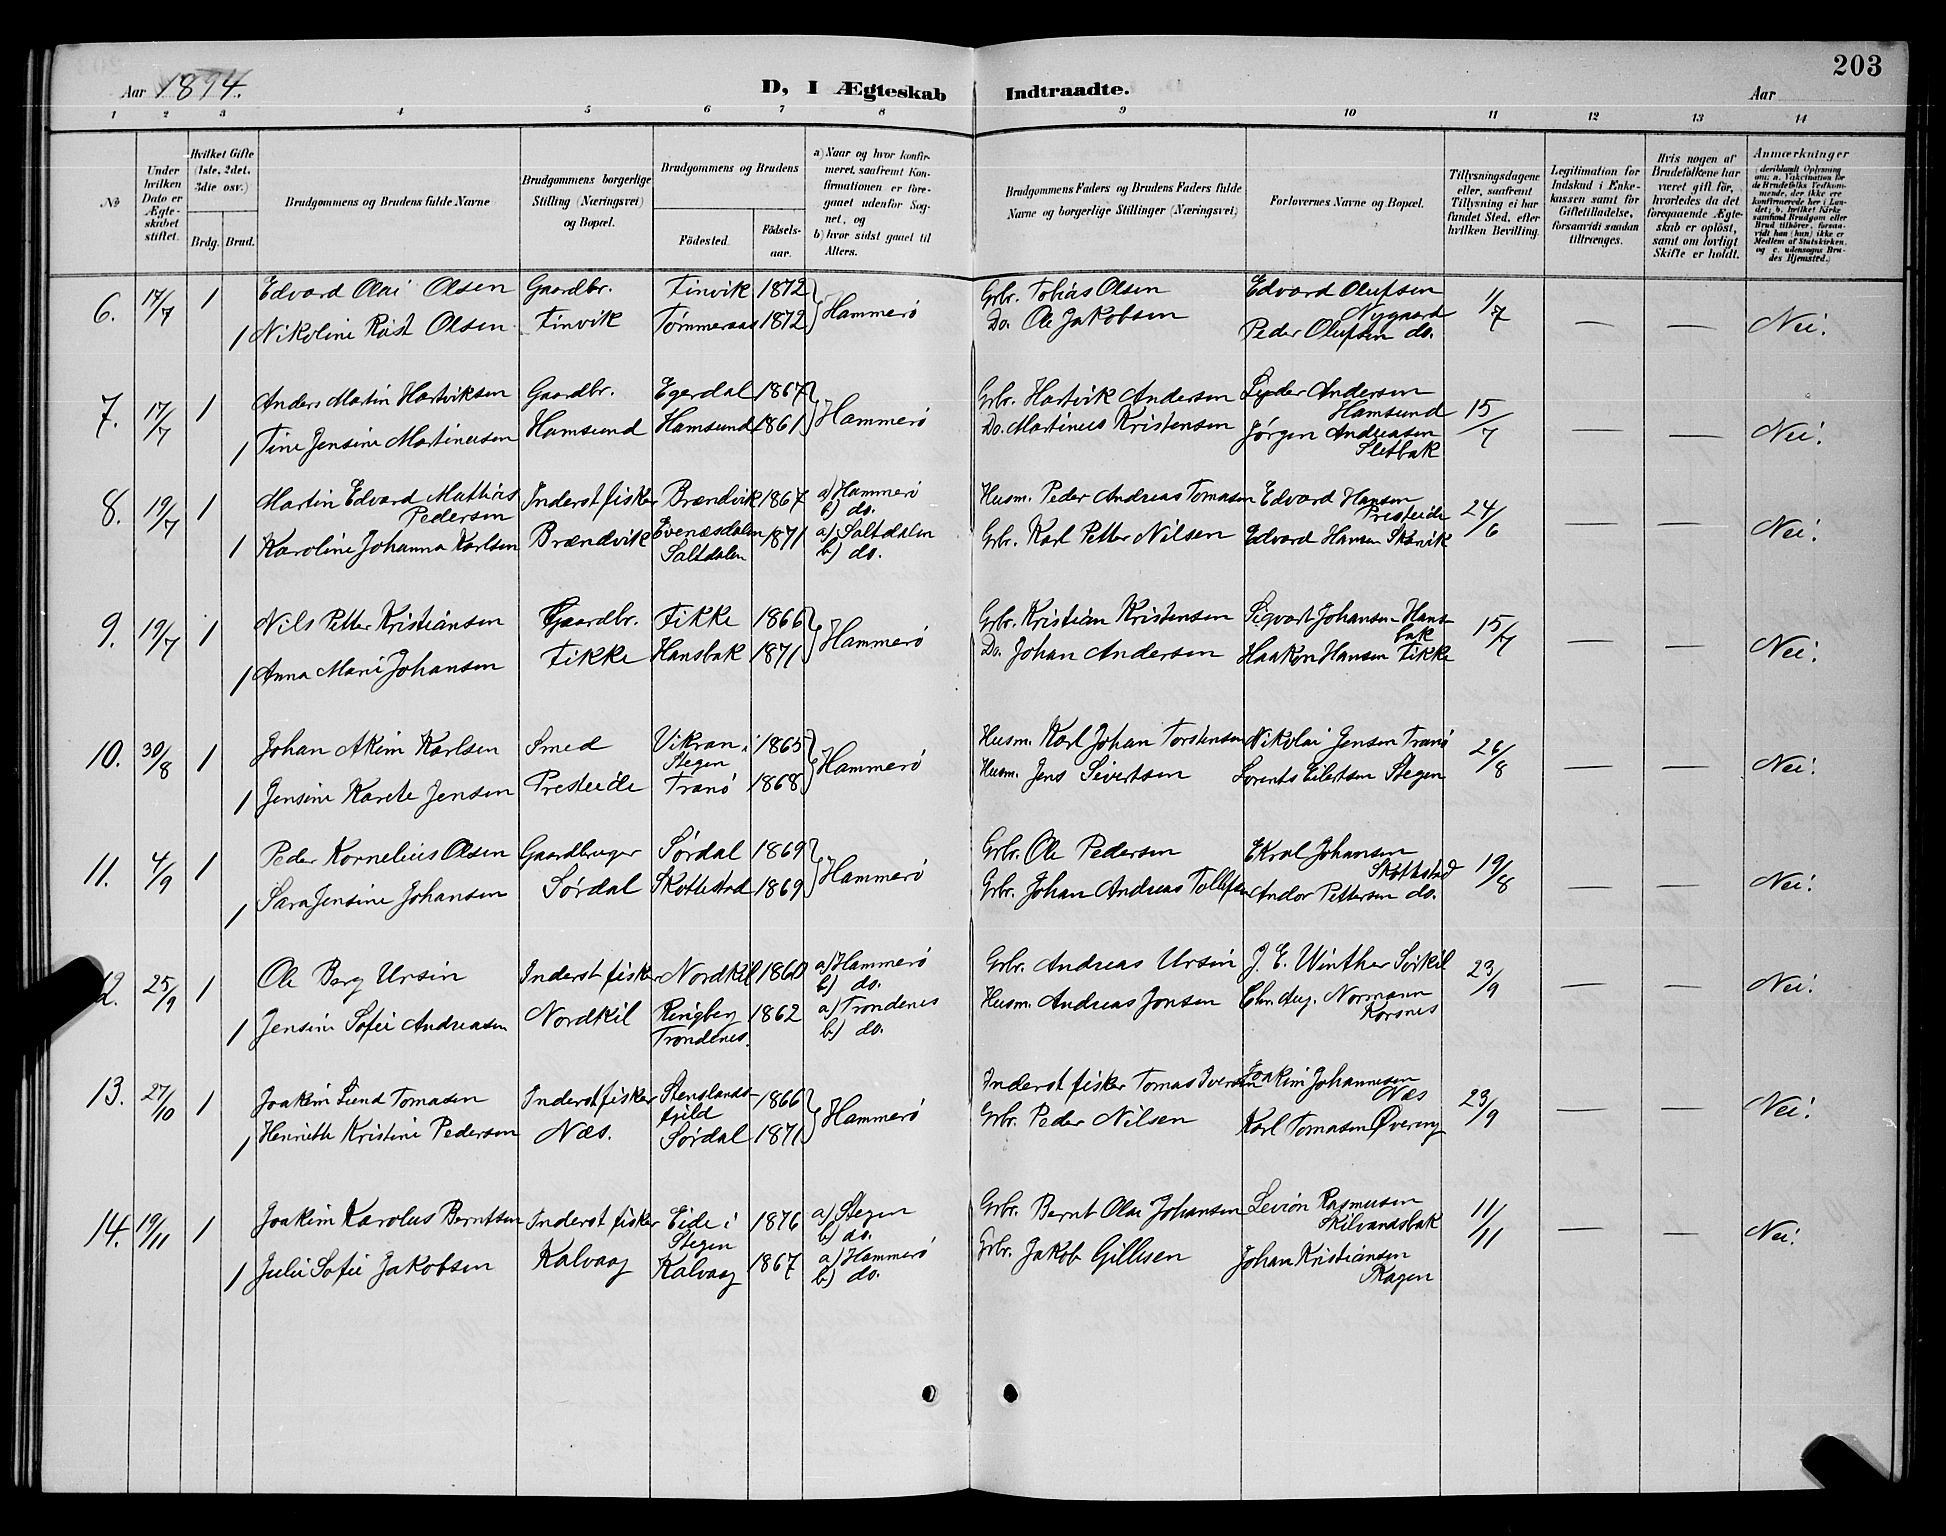 203
Aar 1894.
D, I Ægteskab Indtraadte.
Aar
1 2 3 4 5 6 7 8 9 10 11 12 13 14
№
Under hvilken Dato er Ægteskabet stiftet.
Hvilket Gifte (1ste, 2det, 3die osv.)
Brdg. Brud.
Brudgommens og Brudens fulde Navne
Brudgommens borgerlige Stilling (Næringsvei) og Bopæl.
Brudgommens og Brudens
Födested.
Födselsaar.
a) Naar og hvor konfirmeret, saafremt Konfirmationen er foregaaet udenfor Sognet, og
b) hvor sidst gaaet til Alters.
Brudgommens Faders og Brudens Faders fulde Navne og borgerlige Stillinger (Næringsvei)
Forlovernes Navne og Bopæl.
Tillysningsdagene eller, saafremt Tillysning ei har fundet Sted, efter hvilken Bevilling.
Legitimation for Indskud i Enkekassen samt for Giftetilladelse, forsaavidt saadan tiltrænges.
Hvis nogen af Brudefolkene har været gift för, hvorledes da det foregaaende Ægteskab er oplöst, samt om lovligt Skifte er holdt.
Anmærkninger (deriblandt Oplysning om: a. Vakcination for de Brudefolks Vedkommende, der ikke ere konfirmerede her i Landet; b. hvilket Kirkesamfund Brudgom eller Brud tilhörer, forsaavidt han (hun) ikke er Medlem af Statskirken, og c. udensogns Brudes Hjemsted.)
6. 17/7 1 Edvard Olai Olsen Gaardbr. Finvik 1872 Hammerö Grbr. Tobias Olsen Edvard Olufsen Nygaard 1/7 — — Nei.
1 Nikoline Röst Olsen Finvik Tömmeraas 1872 Do. Ole Jakobsen Peder Olufsen do.
7. 17/7 1 Anders Martin Hartviksen Gaardbr. Egerdal 1867 Hammerö Grbr. Hartvik Andersen Peder Andersen Hamsund 15/7 — — Nei.
1 Tine Jensine Martinusen Hamsund Hamsund 1861 Do. Martinus Kristensen Jørgen Andreasen Sletbak
8. 19/7 1 Martin Edvard Mathias Pedersen Inderst fisker Brændvik 1867 a) Hammerö b) do. Husm. Peder Andreas Tomasen Edvard Hansen Presteide 24/6 — — Nei.
1 Karoline Johanna Karlsen Brændvik Evenæsdalen Saltdalen 1871 a) Saltdalen b) do. Grbr. Karl Petter Nilsen Edvard Hansen Skarvik
9. 19/7 1 Nils Petter Kristiansen Gaardbr. Fikke 1866 Hammerö Grbr. Kristian Kristensen Sigvart Johansen Hansbak 15/7 — — Nei.
1 Anna Marie Johansen Fikke Hansbak 1871 Do. Johan Andersen Haakon Hansen Fikke
10. 30/8 1 Johan Akim Karlsen Smed Vikran i Stegen 1865 Hammerö Husm. Karl Johan Torstensen Nikolai Jensen Tranö 26/8 — — Nei.
1 Jensine Karete Jensen Presteide Tranö 1868 Husm. Jens Sivertsen Lorents Eilertsen Stegen
11. 4/9 1 Peder Kornelius Olsen Gaardbruger Sördal 1869 Hammerö Grbr. Ole Pedersen Johansen Skottestad 19/8 — — Nei.
1 Sara Jensine Johansen Sördal Skottestad 1869 Grbr. Johan Andreas Tollefsen Andor Pettersen do.
12. 25/9 1 Ole Berg Ursin Inderst fisker Nordkil 1860 a) Hammerö b) do. Grbr. Andreas Ursin J. E. Winther Sörkil 23/9 — — Nei.
1 Jensine Sofie Andreasen Nordkil Ringberg Trondenes. 1862 a) Trondenes b) do. Husm. Andreas Jonsen Chr. Aug. Normann Korsnes
13. 27/10 1 Joakim Lund Tomasen Inderst fisker Stenslandsfjeld 1866 Hammerö Inderst fisker Tomas Iversen Joakim Johannesen Næs 23/9 — — Nei.
1 Henriette Kristine Pedersen Næs. Sördal 1871 Grbr. Peder Nilsen Karl Tomasen Øvereng
14. 19/11 1 Joakim Karolus Berntsen Inderst fisker Eide i Stegen 1876 a) Stegen b) do. Grbr. Bernt Olai Johansen Rasmusen Skilvandsbak 11/11 — — Nei.
1 Julie Sofie Jakobsen Kalvaag Kalvaag 1867 a) Hammerö b) do. Grbr. Jakob Gillesen Johan Kristiansen Skagen